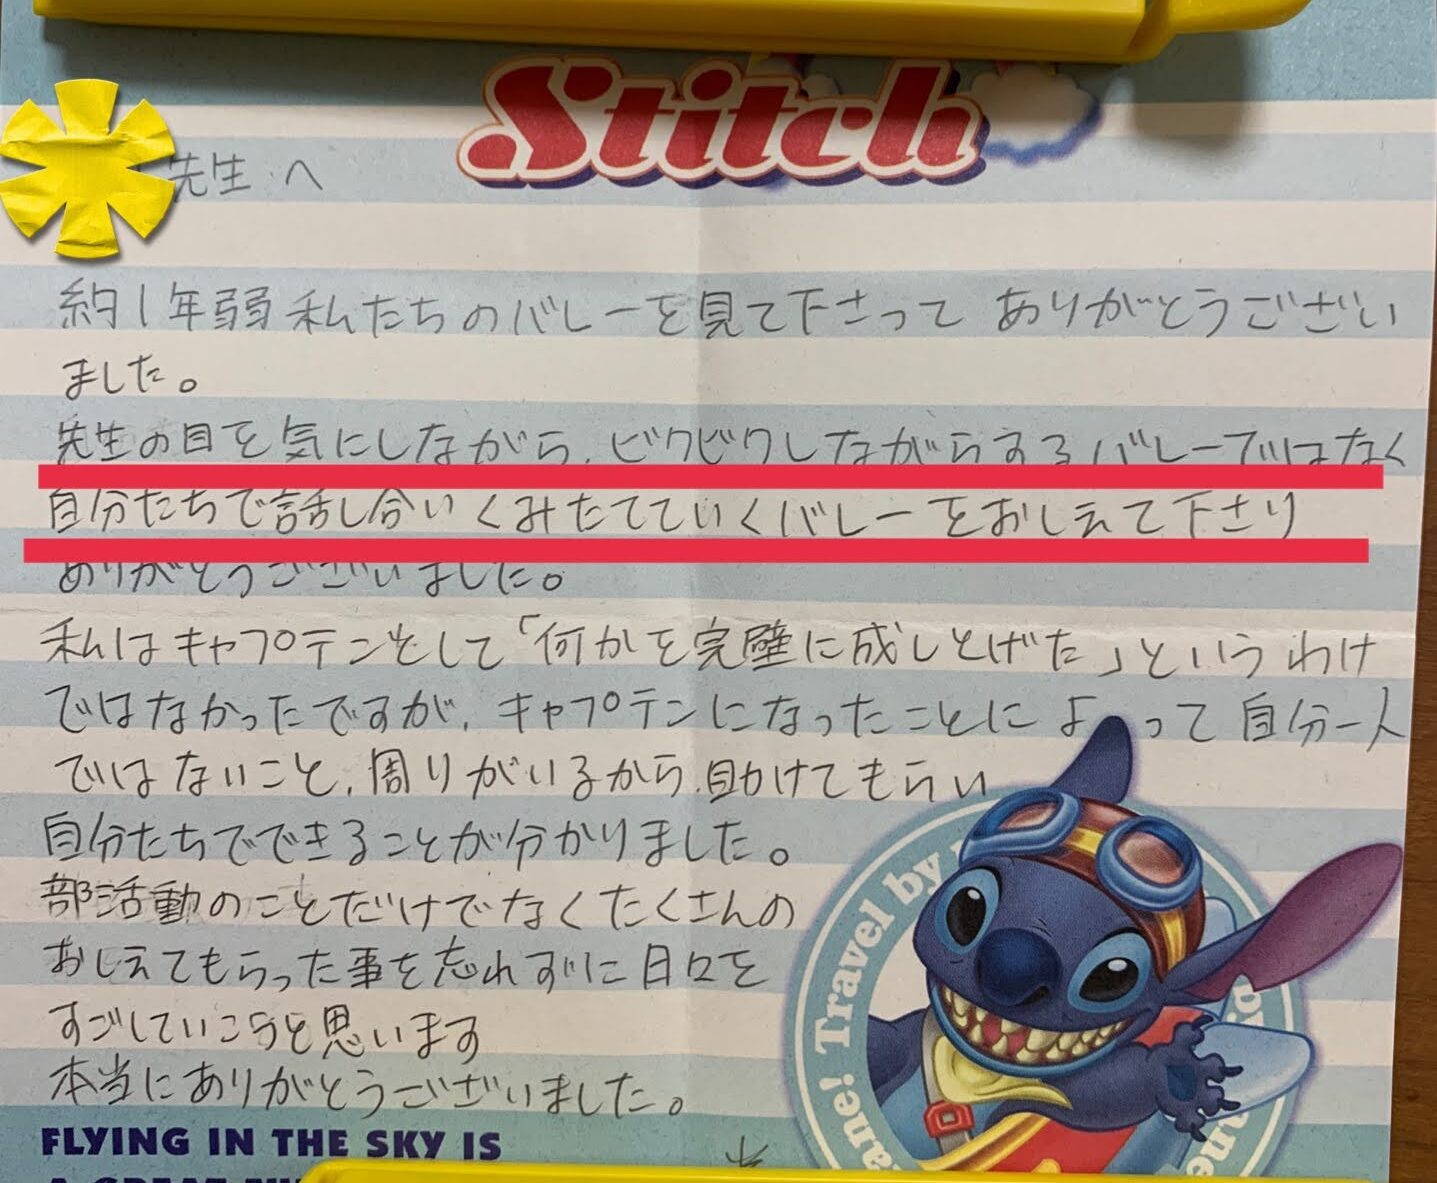 Stitch
先生へ
約1年弱私たちのバレーを見て下さって ありがとうござい
ました。
先生の目を気にしながら、ビクビクしながらするバレーではなく
自分たちで話し合いくみたてていくバレーをおしえて下さり
ありがとうございました。
私はキャプテンとして「何かを完璧に成しとげた」というわけ
ではなかったですが、キャプテンになったことによって自分一人
ではないこと、周りがいるから助けてもらい
自分たちでできることが分かりました。
部活動のことだけでなくたくさんの
おしえてもらった事を忘れずに日々を
すごしていこうと思います
本当にありがとうございました。
FLYING IN THE SKY IS
Travel by